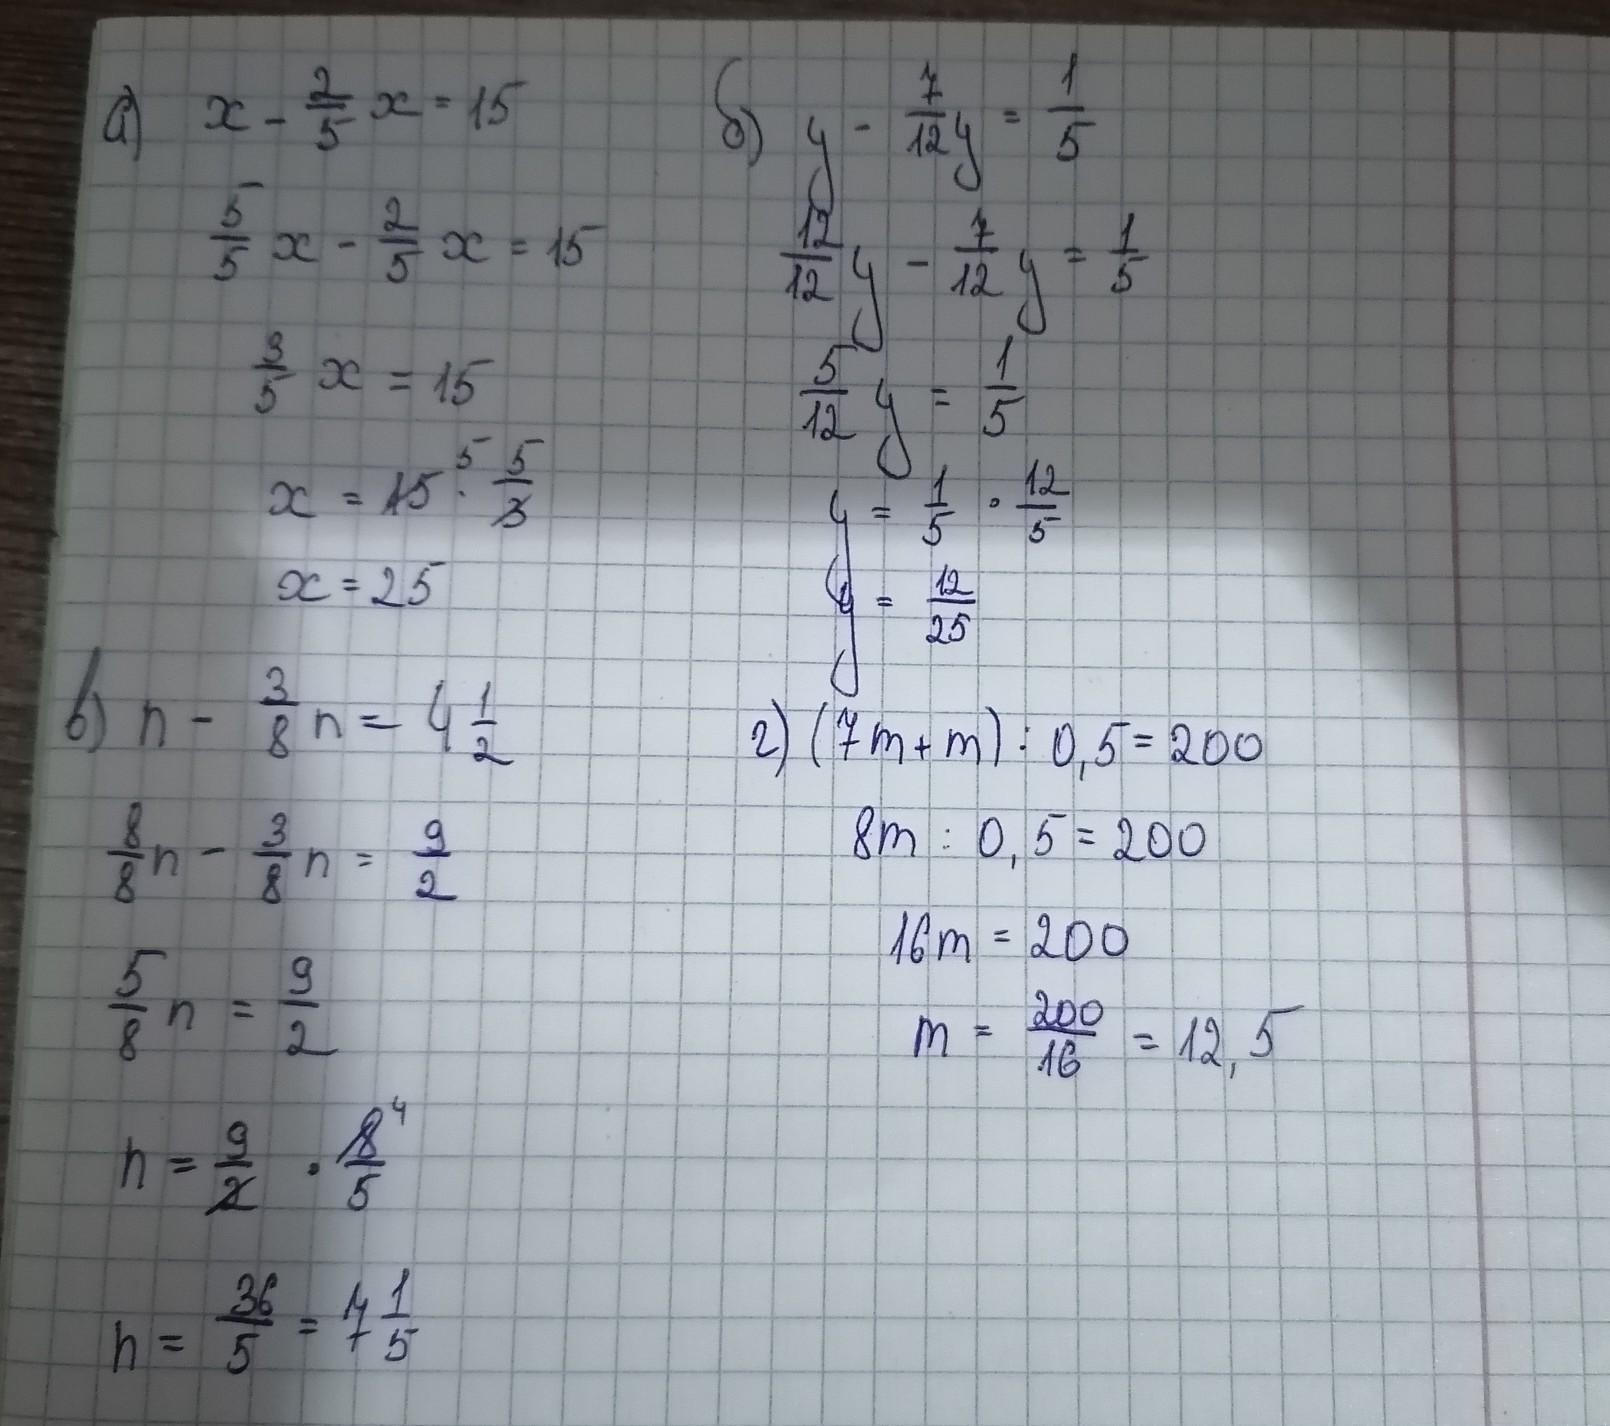 а) x - 2/5 x = 15
5/5 x - 2/5 x = 15
3/5 x = 15
x = 15 5 · 5/3
x = 25
б) y - 7/12 y = 1/5
12/12 y - 7/12 y = 1/5
5/12 y = 1/5
y = 1/5 · 12/5
y = 12/25
в) n - 3/8 n = 4 1/2
8/8 n - 3/8 n = 9/2
5/8 n = 9/2
n = 9/2 · 8/5 4
n = 36/5 = 7 1/5
г) (7m + m) : 0,5 = 200
8m : 0,5 = 200
16m = 200
m = 200/16 = 12,5